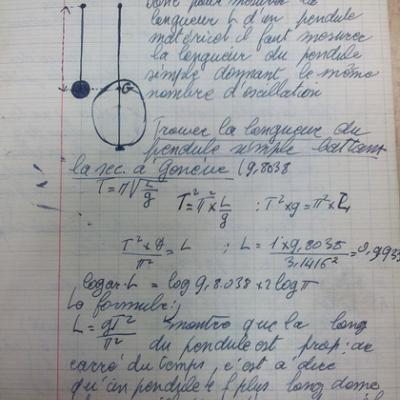 donc pour mesurer la
longueur L d'un pendule
matériel il faut mesurer
la longueur du pendule
simple donnant le même
nombre d'oscillation
G
Trouver la longueur du
pendule simple battant
la sec. à Genève (9,8038
T=π√L/g
T²=π²×L/g ; T²×g=π²×L
T²×g/π²=L ; L=1×9,8038/3,1416²=0,993
logar. L = log 9,8.038 × 2 log π
La formule:
L=gT²/π² montre que la long
du pendule est prop: au
carré du temps, c'est à dire
qu'un pendule 4 f plus long donc